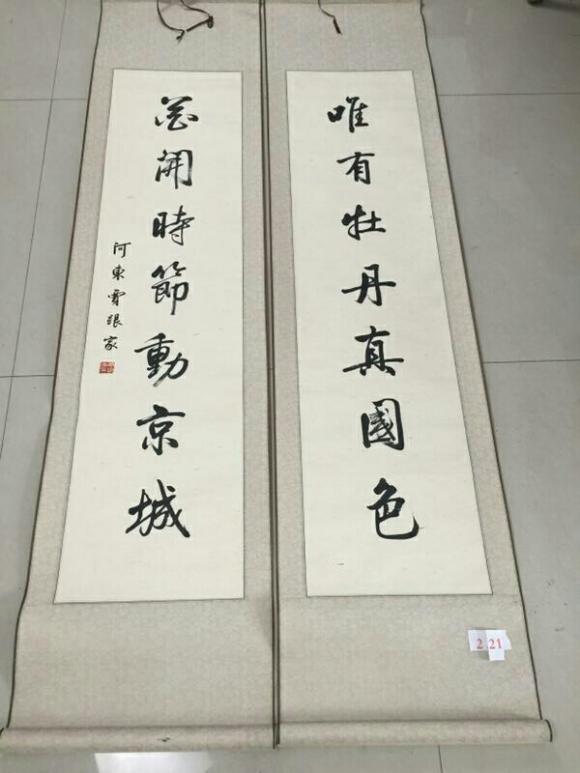 唯有牡丹真國色
花開時節動京城
河東家
2 21